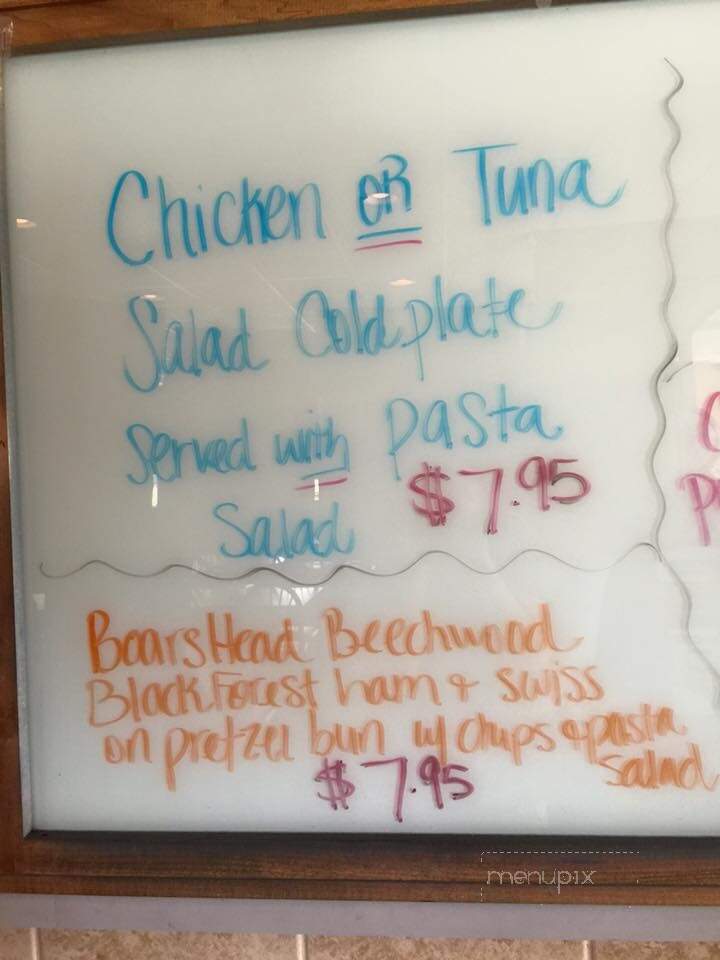 Chicken OR Tuna
Salad Coldplate
served with pasta
Salad $7.95
BoarsHead Beechwood
Black Forest ham & swiss
on pretzel bun w/ chips & pasta
Salad
$7.95
menupix